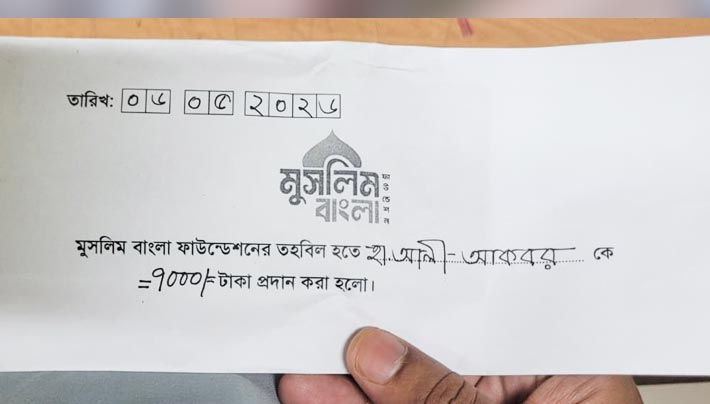 তারিখ: ০৬ ০৫ ২০২৬
মুসলিম
বাংলা
ফাউন্ডেশন
মুসলিম বাংলা ফাউন্ডেশনের তহবিল হতে হা. আলী-আকবর কে
=৭০০০/= টাকা প্রদান করা হলো।